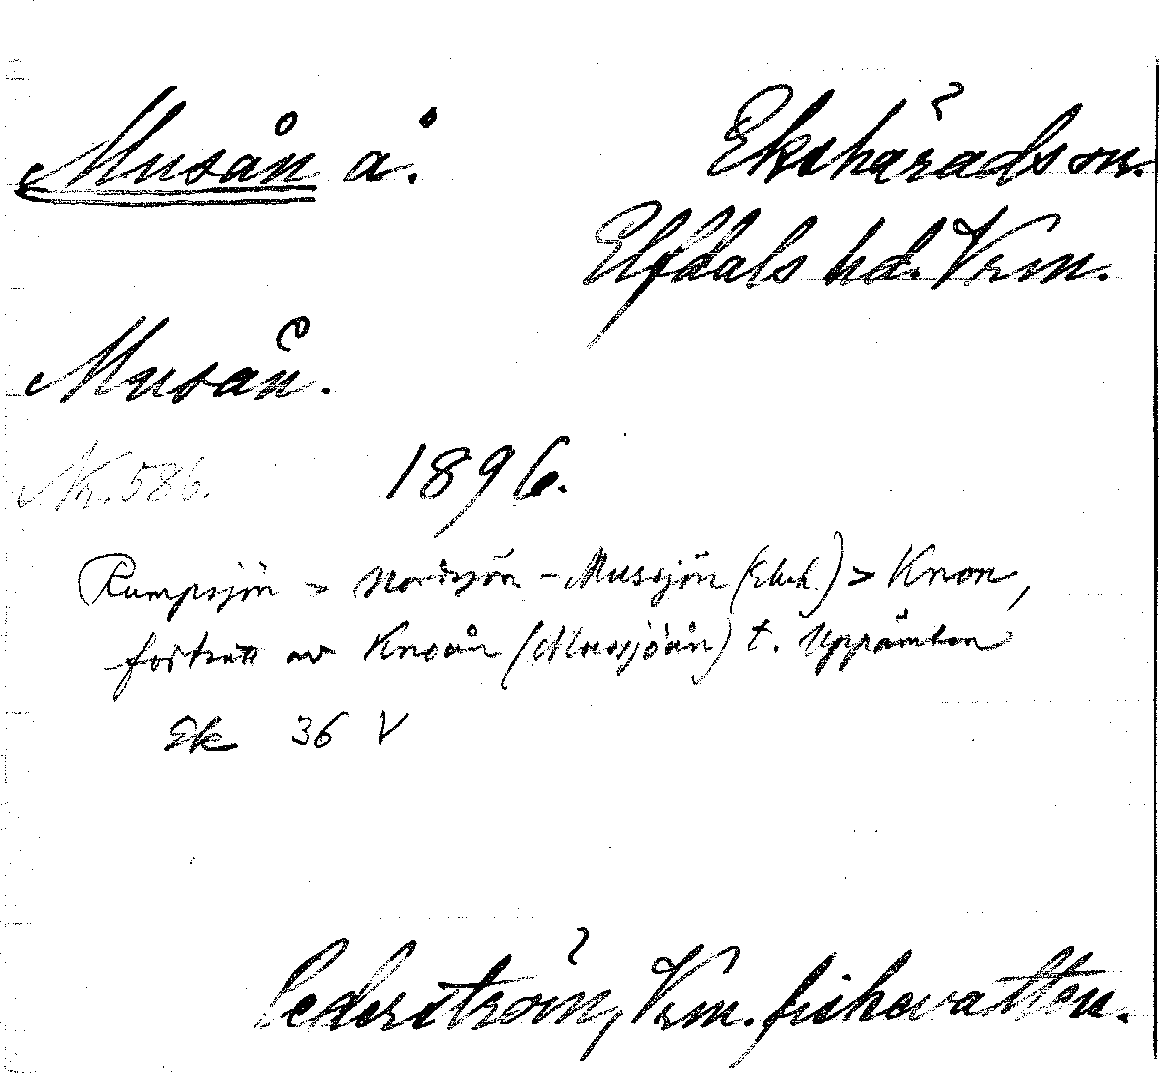 Musån å.
Ekshärads sn.
Elfdals hd. Vrm.
Musån.
Nr. 586. 1896.
Rumpsjön > Nordsjön - Mussjön (Eksh.) > Knon,
fortsatt av Knoån (Mussjöån) t. Uppämten
Ek 36 V
Cederström, Vrm. fiskevatten.